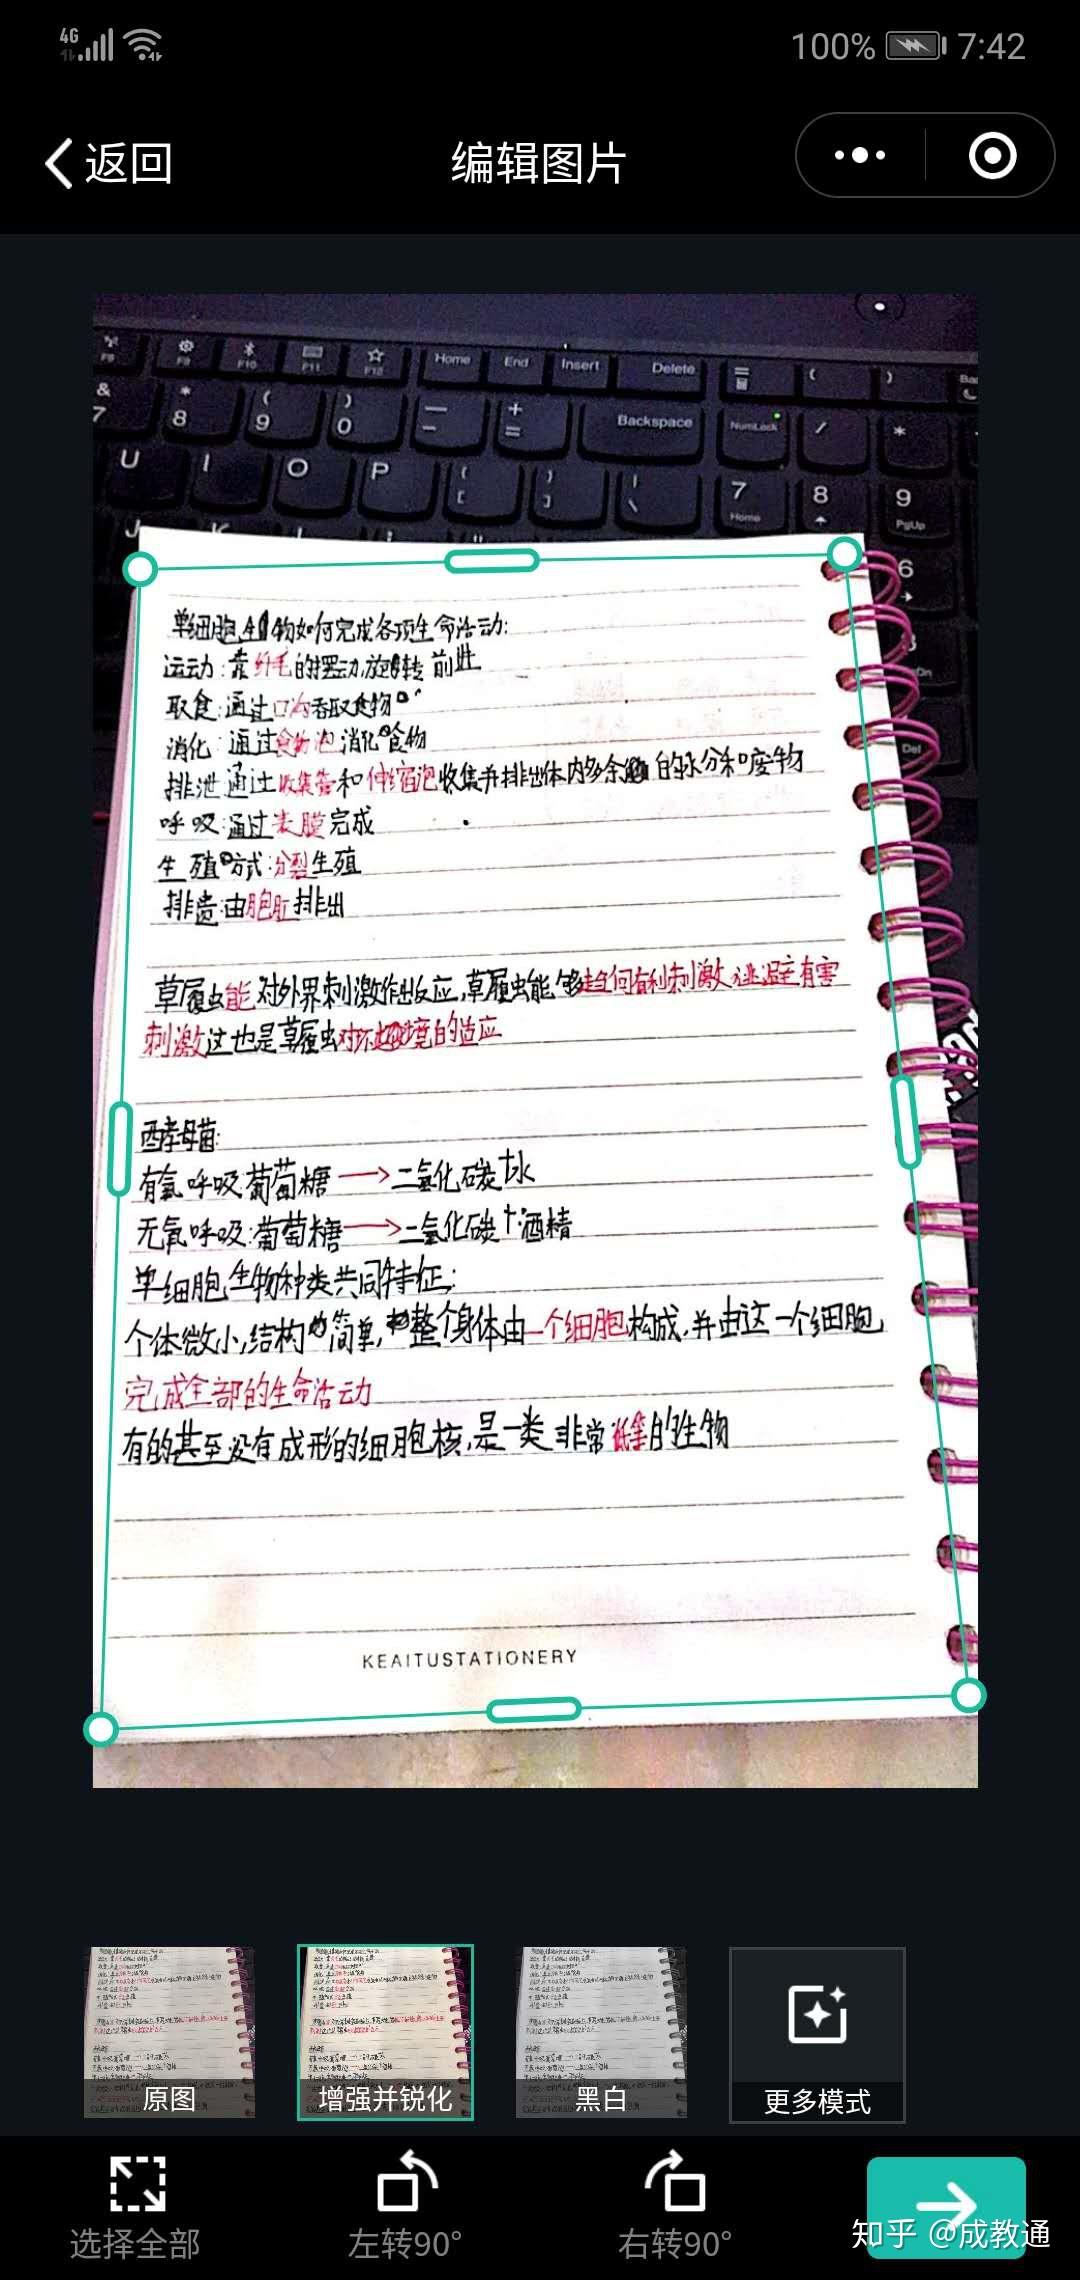 4G 100% 7:42
返回 编辑图片
F9 F10 F11 F12 Home End Insert Delete
& 7 * 8 ( 9 ) 0 — - + = Backspace NumLock / *
U I O P { [ } ] | \ 7 Home 8 9 PgUp
J K L
6
Del
单细胞生物如何完成各项生命活动:
运动:靠纤毛的摆动,旋转前进
取食:通过口沟吞取食物
消化:通过食物泡消化食物
排泄通过收集管和伸缩泡收集并排出体内多余的水分和废物
呼吸:通过表膜完成
生殖方式:分裂生殖
排遗:由胞肛排出
草履虫能对外界刺激作出反应,草履虫能够趋向有利刺激,逃避有害
刺激这也是草履虫对环境的适应
酵母菌:
有氧呼吸:葡萄糖→二氧化碳+水
无氧呼吸:葡萄糖→二氧化碳+酒精
单细胞生物种类共同特征:
个体微小,结构简单,整个身体由一个细胞构成,并由这一个细胞
完成全部的生命活动
有的甚至没有成形的细胞核,是一类非常低等的生物
KEAITUSTATIONERY
原图 增强并锐化 黑白 更多模式
选择全部 左转90° 右转90°
知乎 @成教通